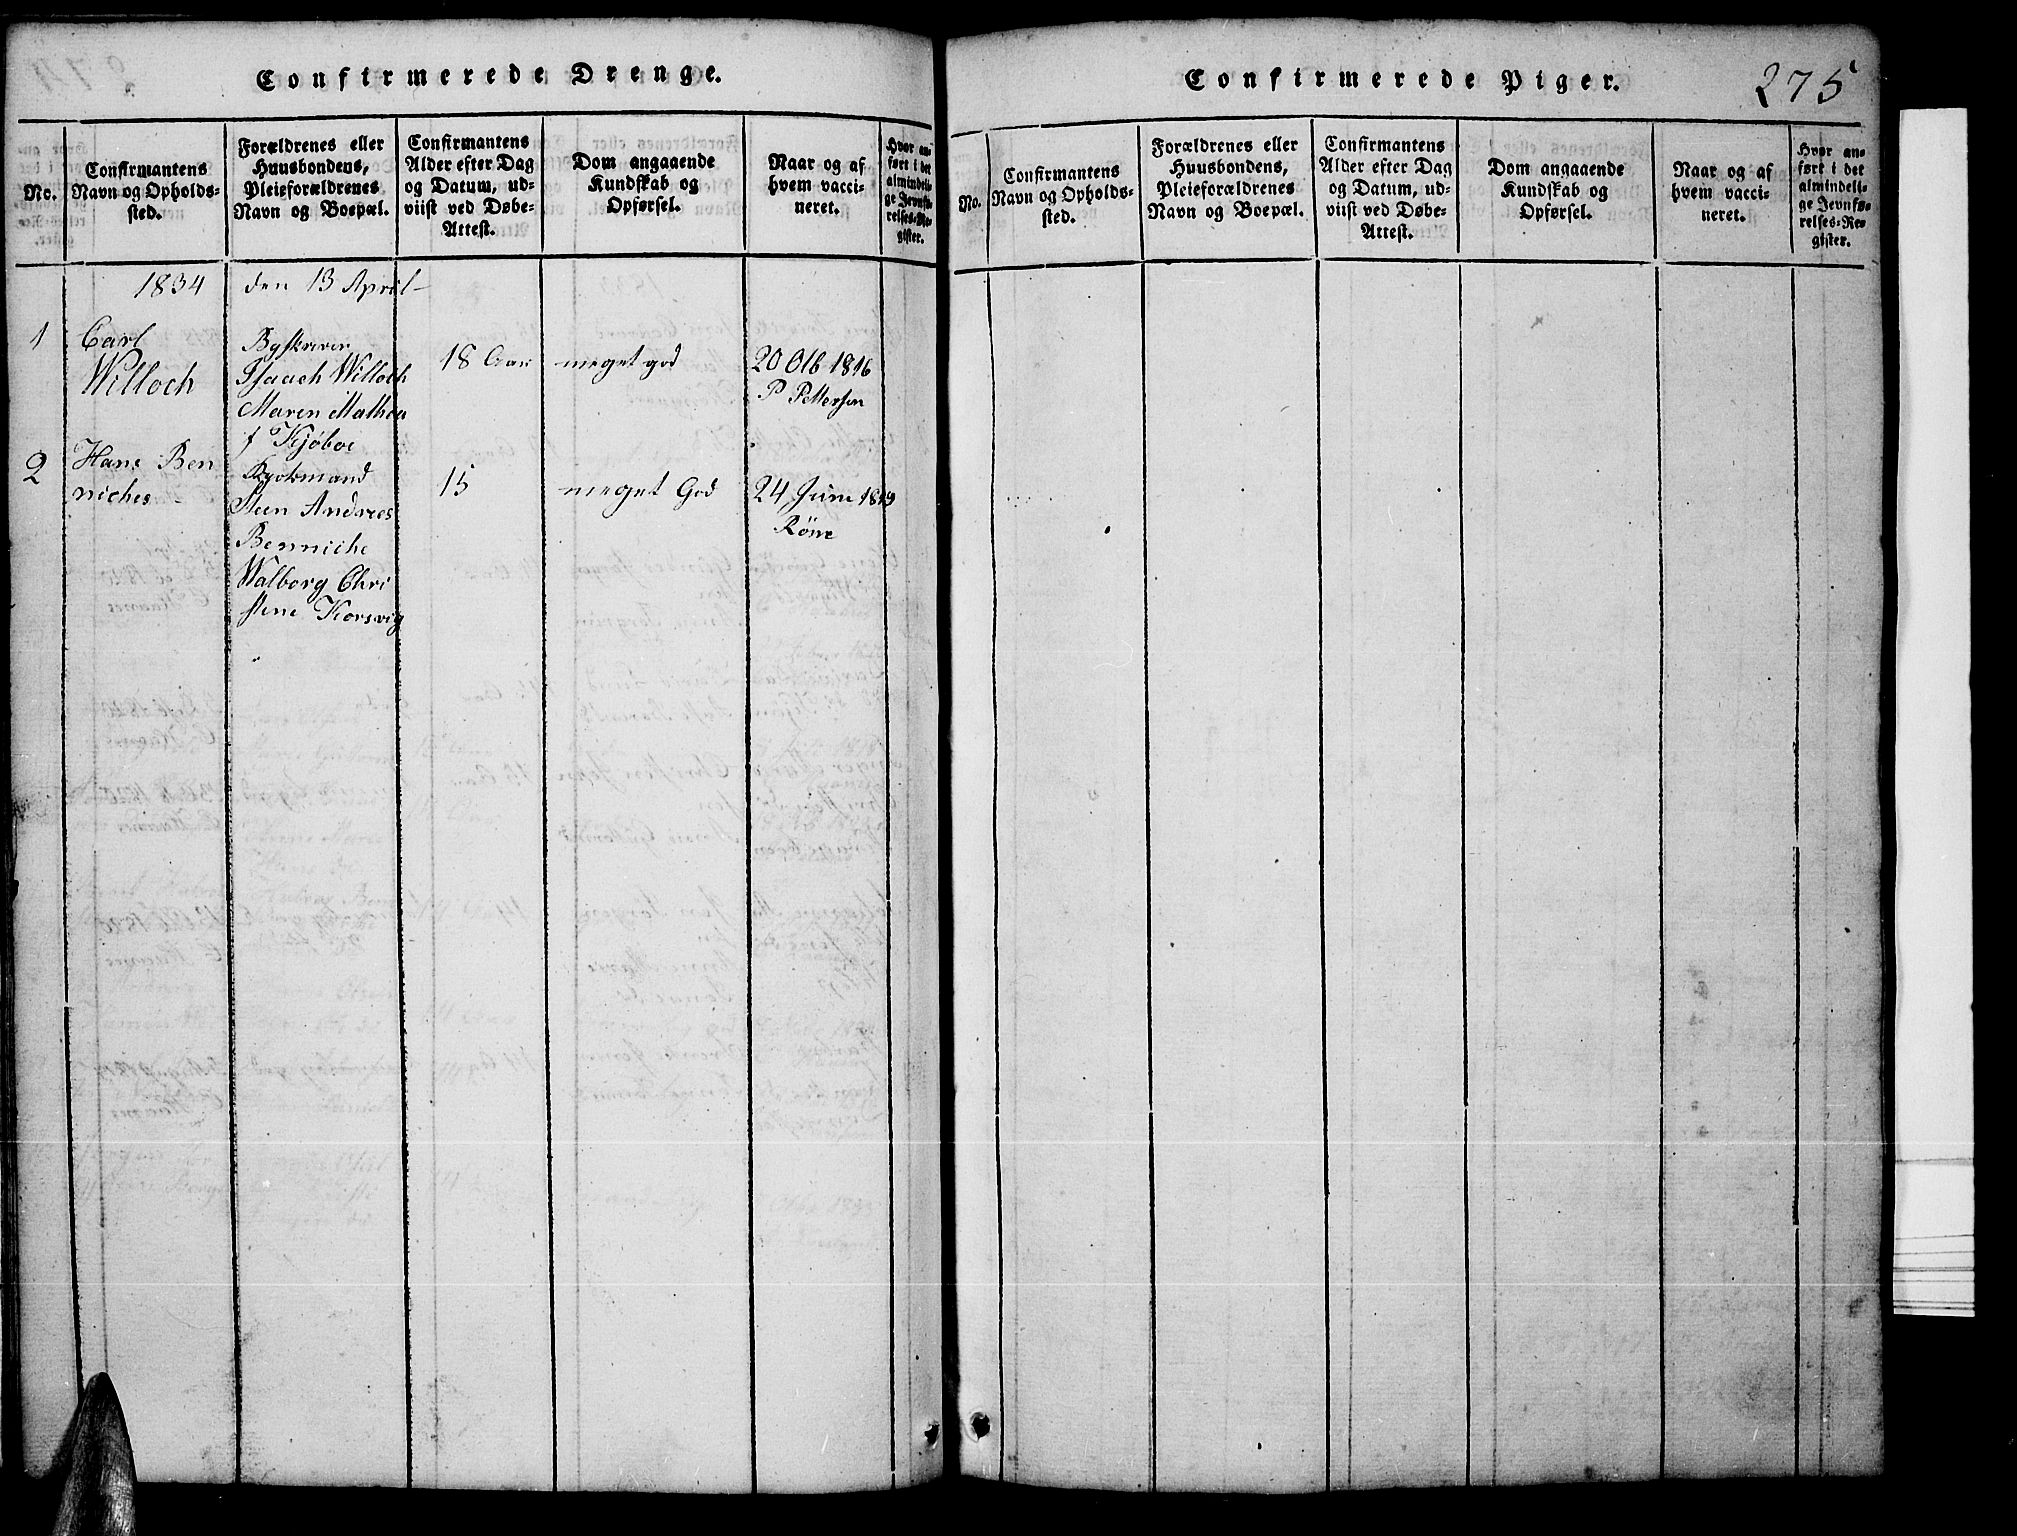 Confirmerede Drenge.
No.
Confirmantens
Navn og Opholds-
sted.
Forældrenes eller
Huusbondens,
Pleieforældrenes
Navn og Boepæl.
Confirmantens
Alder efter Dag
og Datum, ud-
viist ved Døbe-
Attest.
Dom angaaende
Kundskab og
Opførsel.
Naar og af
hvem vacci-
neret.
Hvor an-
ført i det
almindeli-
ge Jevnfø-
relses-Re-
gister.
1834 den 13 April
1
Carl
Willoch
Byskriver
Isaach Willoch
Maren Mathea
f Kjøboe
18 Aar
meget god
20 Otb 1816
P Pettersen
2
Hans Ben
niches
Kjøbmand
Steen Andres
Benniche
Walborg Chri
stene Korsvig
15
meget God
24 Juni 1819
Röine
Confirmerede Piger.
275
No.
Confirmantens
Navn og Opholds-
sted.
Forældrenes eller
Huusbondens,
Pleieforældrenes
Navn og Boepæl.
Confirmantens
Alder efter Dag
og Datum, ud-
viist ved Døbe-
Attest.
Dom angaaende
Kundskab og
Opførsel.
Naar og af
hvem vacci-
neret.
Hvor an-
ført i det
almindeli-
ge Jevnfø-
relses-Re-
gister.